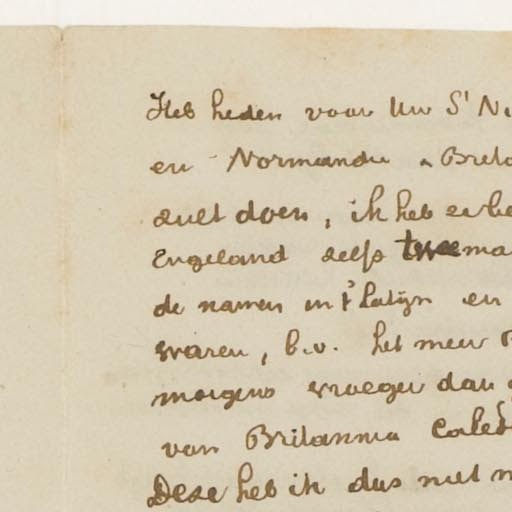 Heb heden voor Uw St Ni
en Normandie & Breta
zult doen, ik heb er be
Engeland zelfs tweema
de namen in 't latijn en
waren, b.v. het meer
morgens vroeger dan g
van Britannia Caled
Deze heb ik dus niet m